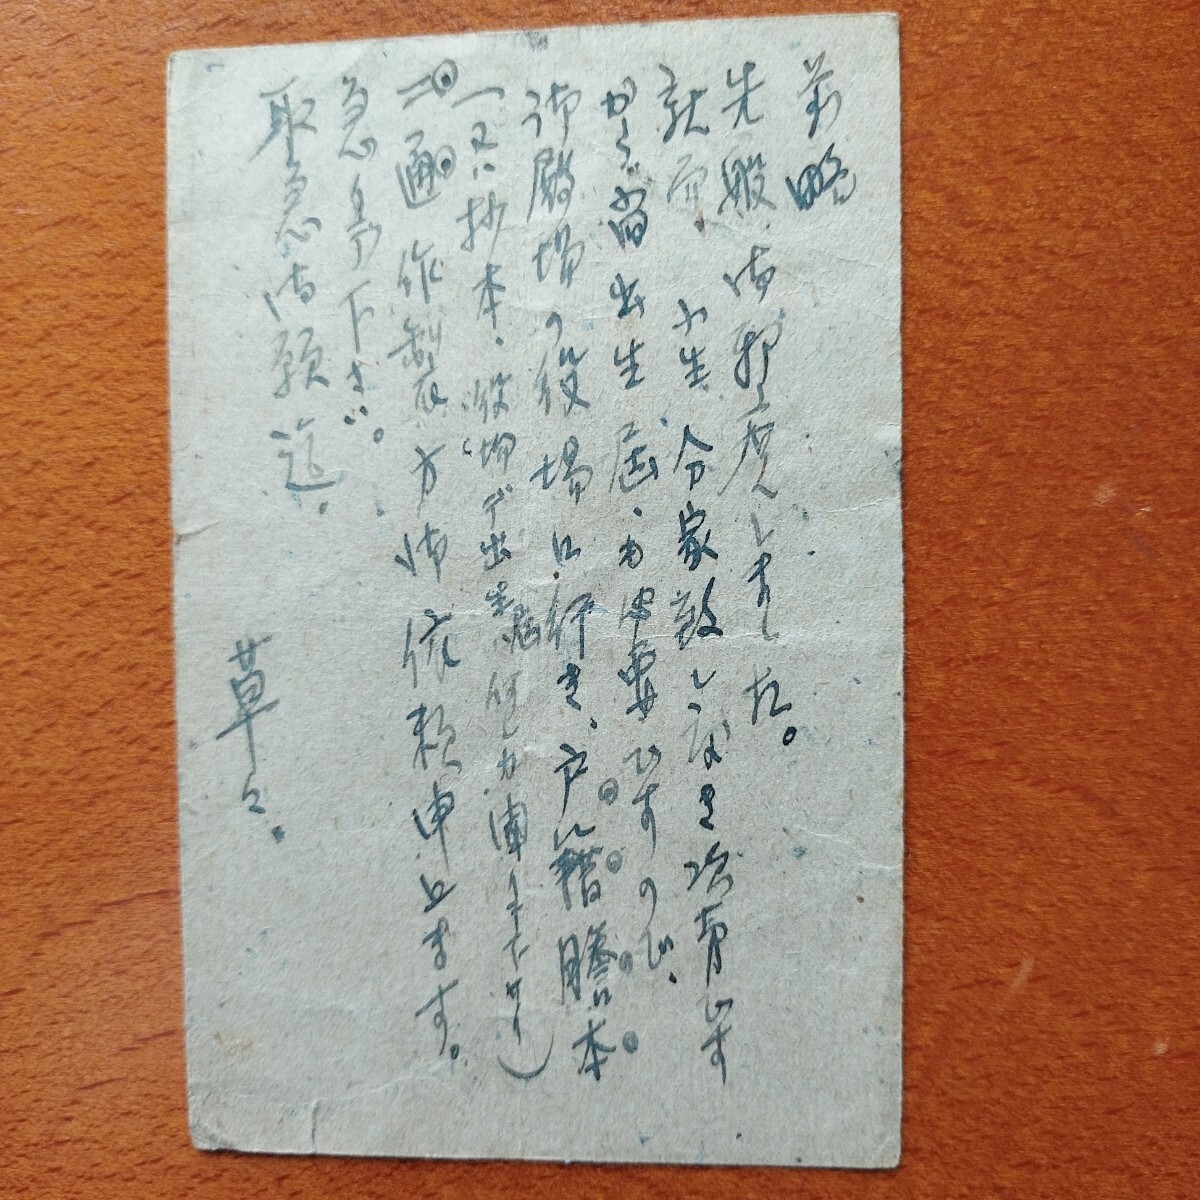 前略
先般御邪魔しました。
就而、小生、分家致し度き次第です
から、尚出生届、も必要ですので、
御殿場の役場に行き、戸籍謄本
(又ハ抄本、役場デ出来
二通作製方御依頼申します。
急ぎ下さい。
取急御願迄。
草々。